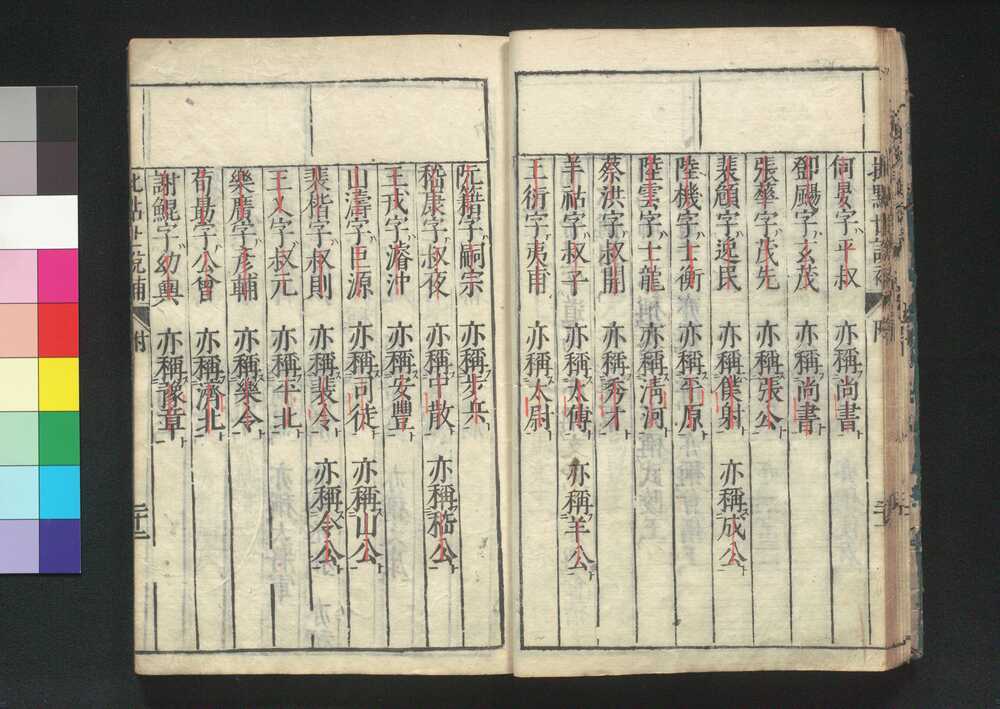 何晏字平叔 亦稱尚書
鄧颺字玄茂 亦稱尚書
張華字茂先 亦稱張公
裴頠字逸民 亦稱僕射 亦稱成公
陸機字士衡 亦稱平原
陸雲字士龍 亦稱清河
蔡洪字叔開 亦稱秀才
羊祜字叔子 亦稱太傅 亦稱羊公
王衍字夷甫 亦稱太尉
阮籍字嗣宗 亦稱步兵
嵇康字叔夜 亦稱中散 亦稱嵇公
王戎字濬沖 亦稱安豐
山濤字巨源 亦稱司徒 亦稱山公
裴楷字叔則 亦稱裴令 亦稱令公
王乂字叔元 亦稱平北
樂廣字彥輔 亦稱樂令
荀勗字公曾 亦稱濟北
謝鯤字幼輿 亦稱豫章